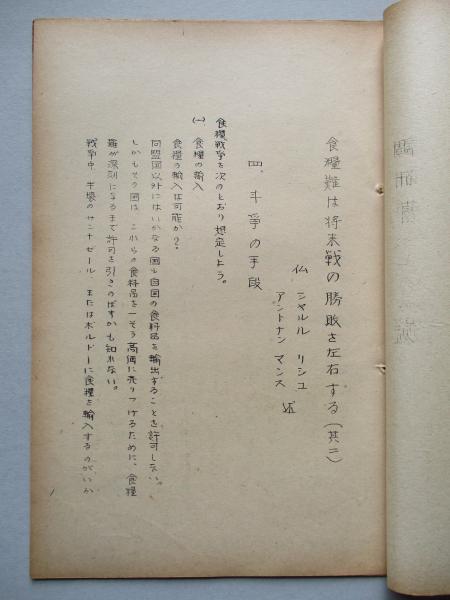 食糧難は将来戦の勝敗を左右する(其二)
仏 シャルル リシュ
アントナン マンス 述
四、斗爭の手段
食糧戦争を次のとおり想定しよう。
(一) 食糧の輸入
食糧の輸入は可能か?
同盟国以外にはいかなる国も自国の食料品を輸出することを許可しない。
しかもその国は、これらの食料品を一そう高価に売りつけるために、食糧
難が深刻になるまで許可を引きのばすかも知れない。
戦争中、半壊のサンナゼール、またはボルドーに食糧を輸入するのがいか